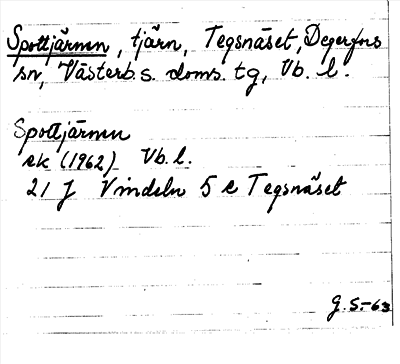 Spottjärnen, tjärn, Tegsnäset, Degerfors
sn, Västerb. s. doms. tg, Vb. l.
Spottjärnen
ek (1962) Vb. l.
21 J Vindeln 5 e Tegsnäset
G.S.-63